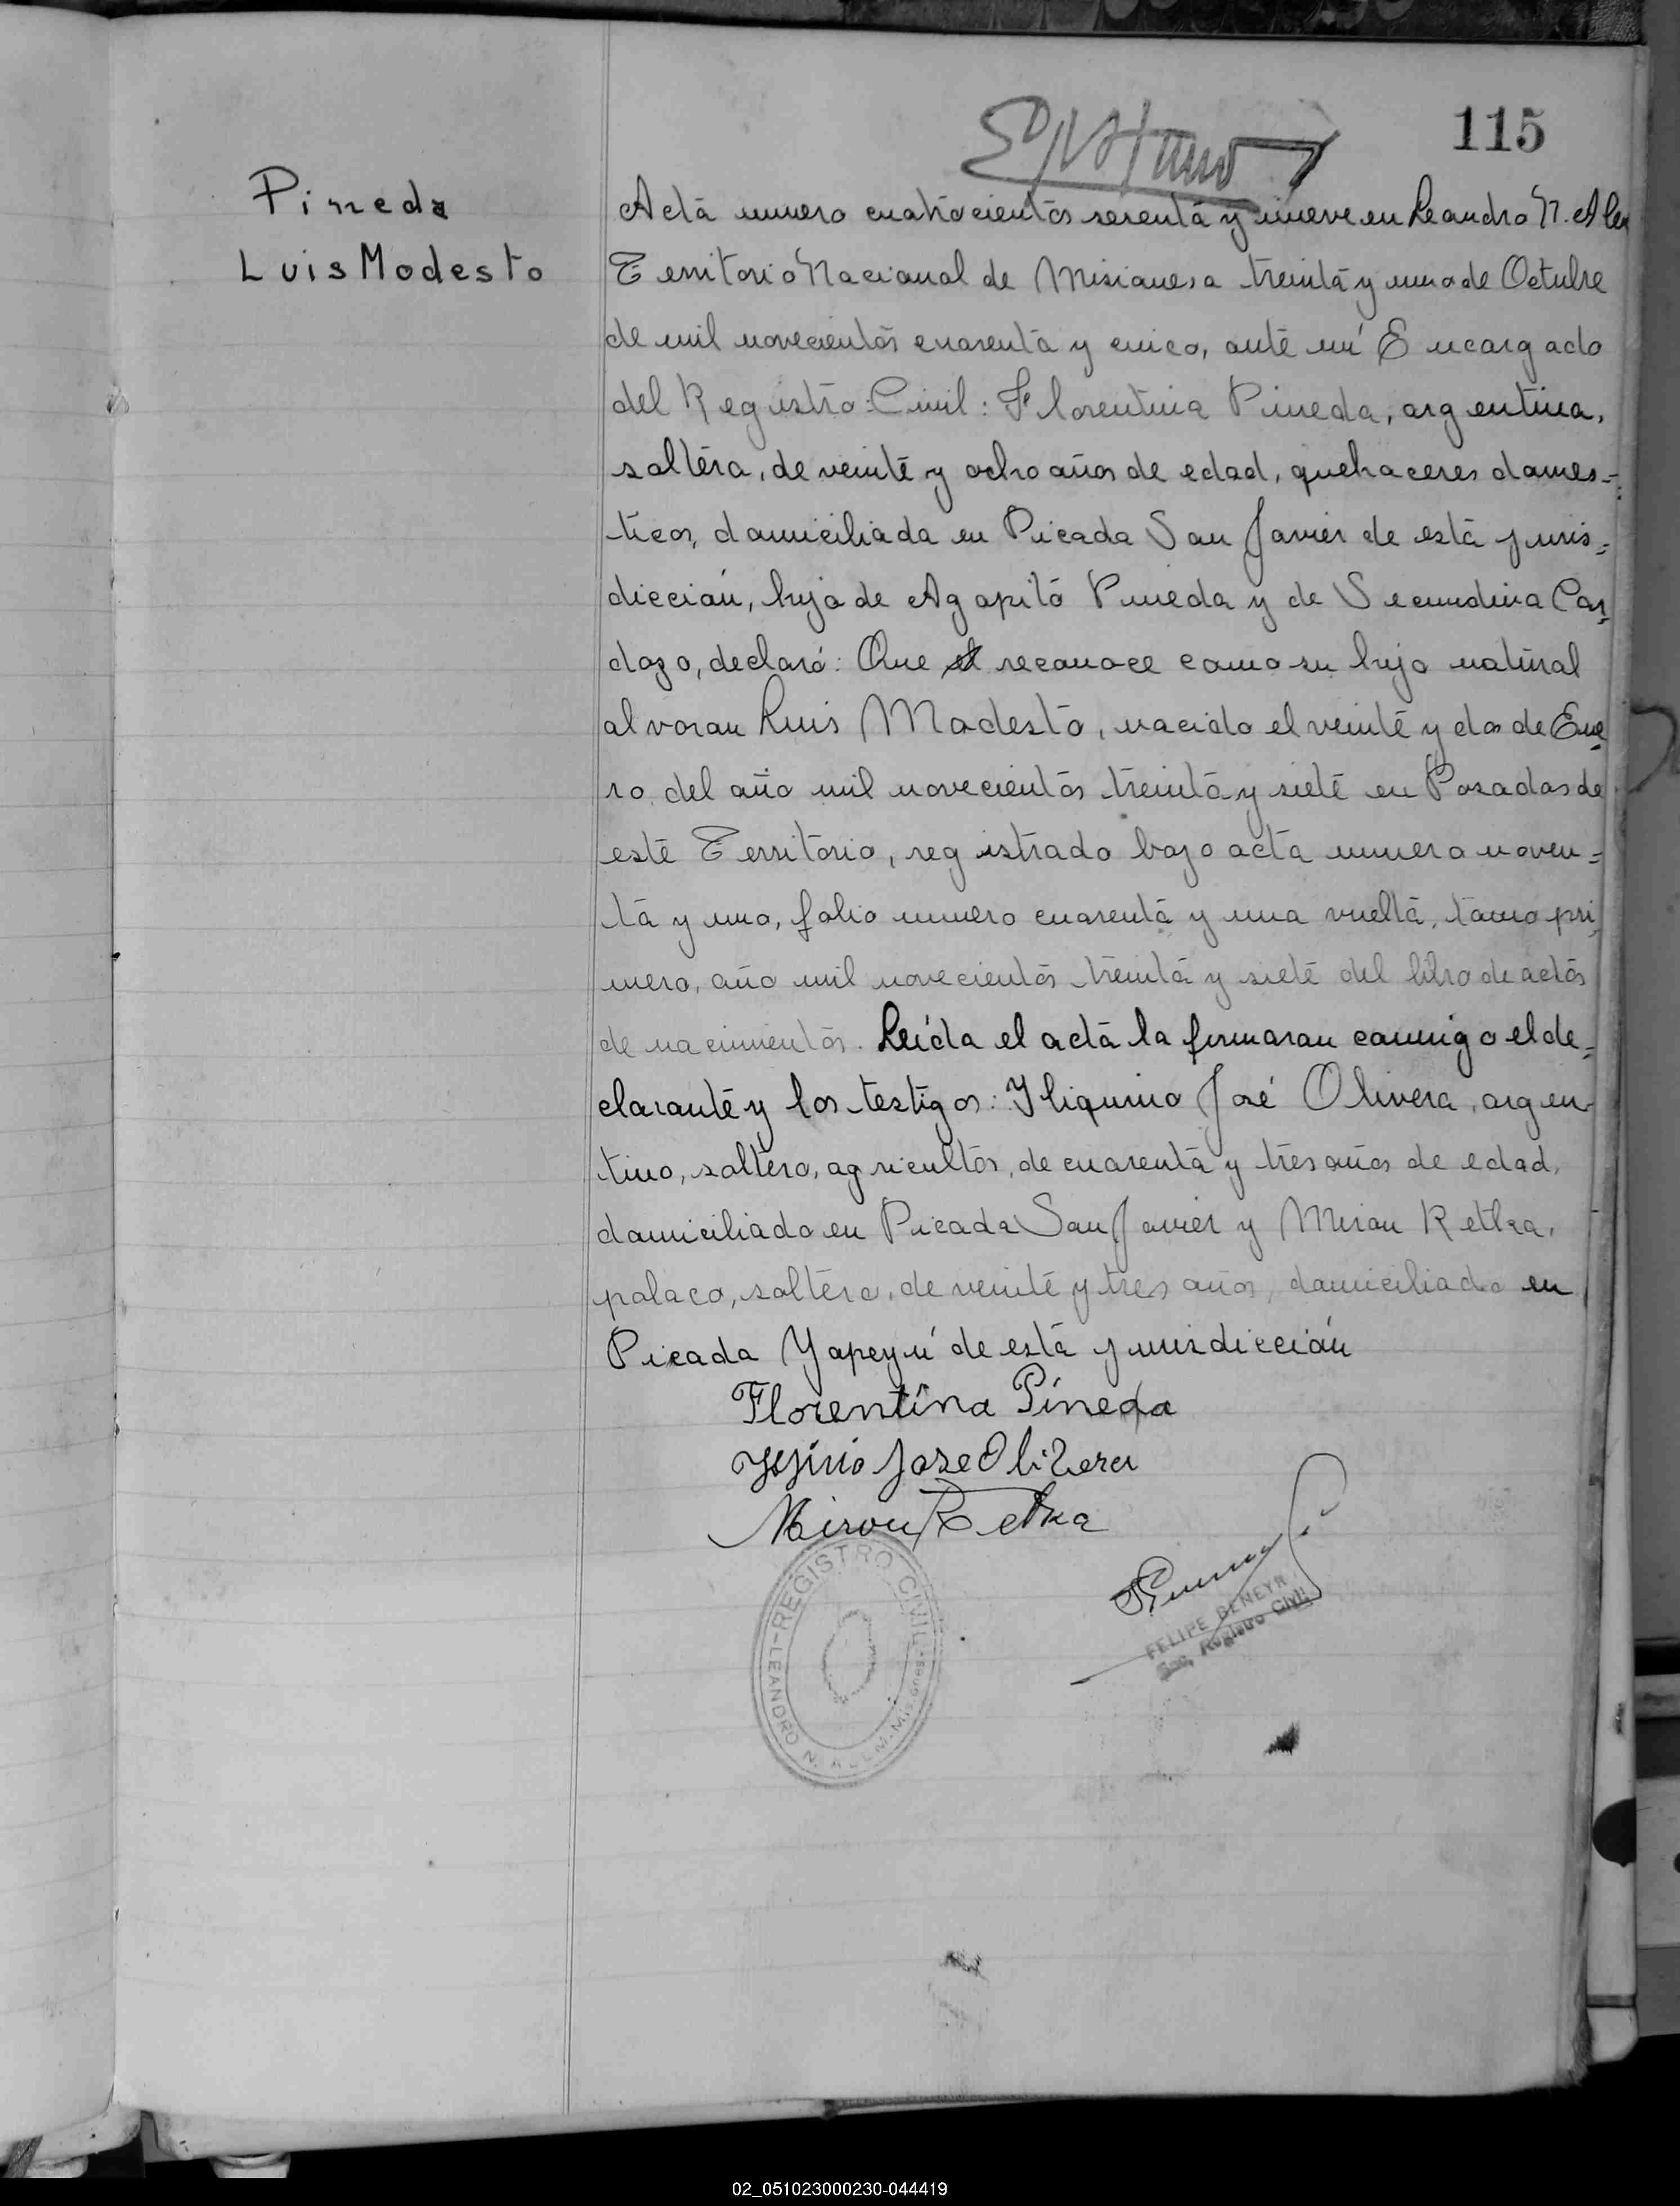 115
Pineda
Luis Modesto
Acta numero cuatrocientos sesenta y nueve en Leandro N. Alem
Territorio Nacional de Misiones, a treinta y uno de Octubre
de mil novecientos cuarenta y cinco, ante mi Encargado
del Registro Civil: Florentina Pineda, argentina,
soltera, de veinte y ocho años de edad, quehaceres domes=
ticos, domiciliada en Picada San Javier de esta juris=
dicción, hija de Agapito Pineda y de Secundina Car=
dozo, declaró: Que reconoce como su hijo natural
al varon Luis Modesto, nacido el veinte y dos de Ene
ro del año mil novecientos treinta y siete en Posadas de
este Territorio, registrado bajo acta numero noven=
ta y uno, folio numero cuarenta y una vuelta, tomo pri
mero, año mil novecientos treinta y siete del libro de actas
de nacimientos. Leída el acta la firmaran conmigo el de=
clarante y los testigos: José Olivera, argen
tino, soltero, agricultor, de cuarenta y tres años de edad,
domiciliado en Picada San Javier y Miron Retka,
polaco, soltero, de veinte y tres años, domiciliado en
Picada Yapeyú de esta jurisdicción
Florentina Pineda
Jose Olivera
Miron Retka
REGISTRO CIVIL
LEANDRO N. ALEM - Misiones
FELIPE BENEYR
Registro Civil
02_051023000230-044419